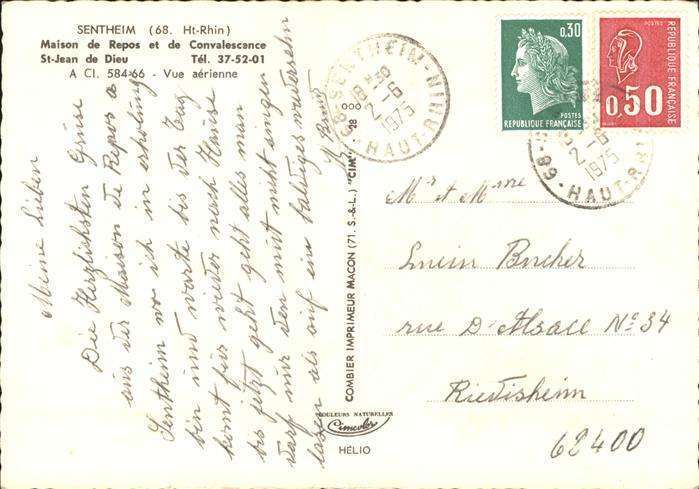 SENTHEIM (68. Ht-Rhin)
Maison de Repos et de Convalescence
St-Jean de Dieu Tél. 37-52-01
A Cl. 584-66 - Vue aérienne
Meine Lieben
Die Herzlichsten Grüse
aus der Maison de Repos a
Sentheim wo ich in erholung
bin und warte bis der Tag
komt für wieder nach Hause
bis jetzt geht alles man
darf nur den mitt nicht singen
lassen als auf ein baldiges wiedersehn
COMBIER IMPRIMEUR MACON (71. S.-&-L.) "CIM"
COULEURS NATURELLES
Cimcolor
HÉLIO
SENTHEIM
18H30
2-6
1975
68 HAUT-RHIN
0,30
POSTES
REPUBLIQUE FRANÇAISE
POSTES
REPUBLIQUE FRANÇAISE
0,50
2-6
1975
68 HAUT-RHIN
Mr et Mme
Lucien Bucher
rue D'Alsace No 34
Riedisheim
62400